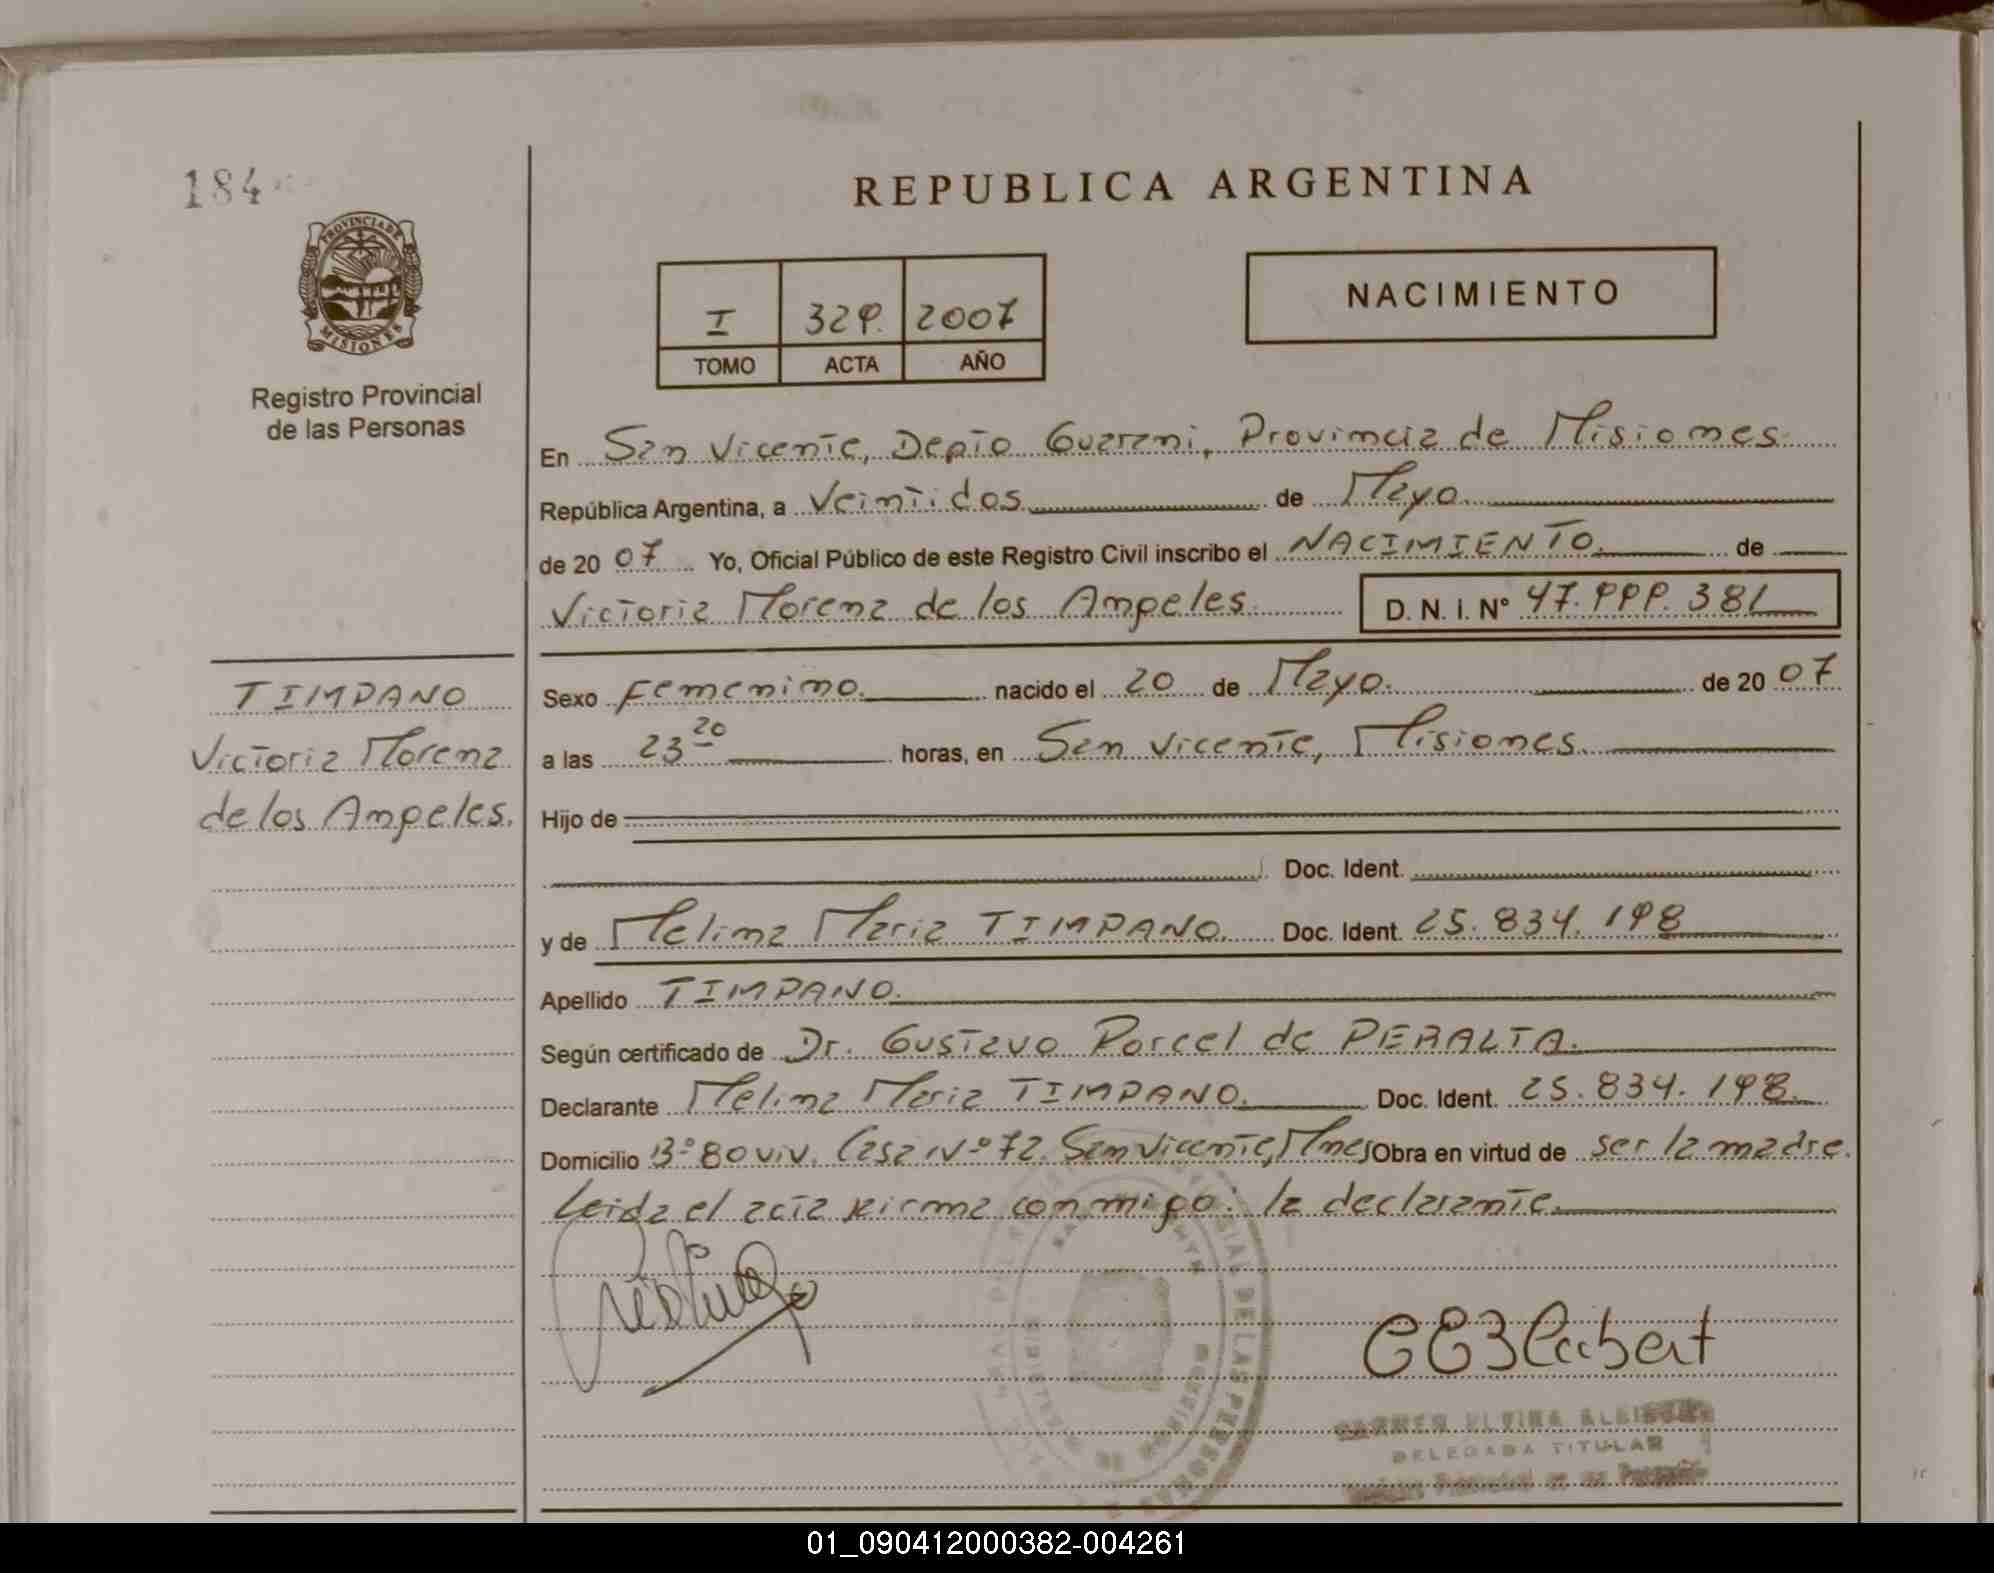 184
PROVINCIA DE
MISIONES
Registro Provincial
de las Personas
REPUBLICA ARGENTINA
I 329. 2007
TOMO ACTA AÑO
NACIMIENTO
En San Vicente, Depto Guarani, Provincia de Misiones
República Argentina, a Veintidos de Mayo
de 20 07 Yo, Oficial Público de este Registro Civil inscribo el NACIMIENTO. de
Victoria Morena de los Angeles. D. N. I. N° 47.999.381
TIMPANO
Victoria Morena
de los Angeles.
Sexo Femenino. nacido el 20 de Mayo. de 20 07
a las 23 20 horas, en San Vicente, Misiones.
Hijo de
Doc. Ident.
y de Melina Maria TIMPANO. Doc. Ident. 25.834.198
Apellido TIMPANO.
Según certificado de Dr. Gustavo Porcel de PERALTA.
Declarante Melina Maria TIMPANO. Doc. Ident. 25.834.198.
Domicilio B° 80 viv. Casa N° 72. San Vicente, Mnes Obra en virtud de ser la madre.
Leida el acta firma conmigo: la declarante.
DELEGADA TITULAR
01_090412000382-004261